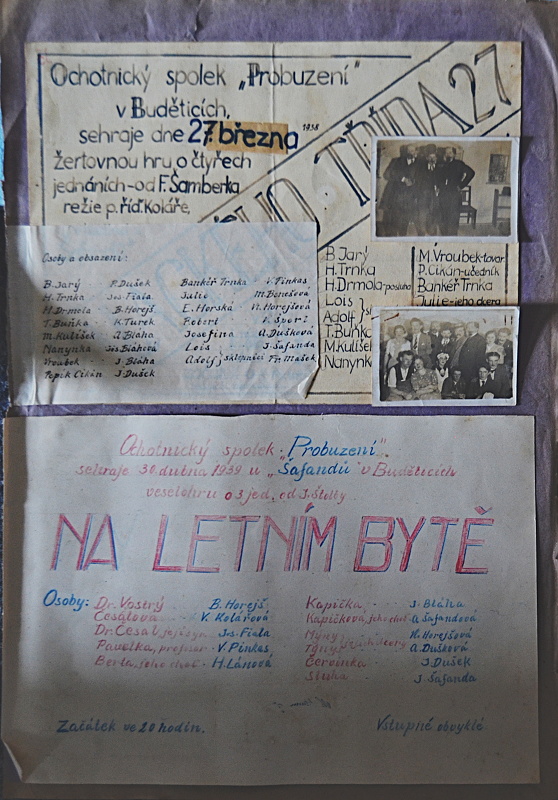 Ochotnický spolek „Probuzení"
v Buděticích,
sehraje dne 27. března 1938
žertovnou hru o čtyřech
jednáních - od F. Šamberka
režie p. říd. Koláře,
TŘÍDA 27
Osoby a obsazení:
B. Jarý P. Dušek Bankéř Trnka V. Pinkas
H. Trnka Jos. Fiala Julie M. Benešová
H. Drmola B. Horejš E. Horská N. Horejšová
T. Buňka K. Turek Robert V. Šborl
M. Kulíšek A. Bláha Josefina A. Dušková
Nanynka Lois J. Šafanda
Vroubek J. Bláha Adolf, sklepníci Fr. Mašek
Pepík Cikán J. Dušek
B. Jarý
H. Trnka
H. Drmola-posluha
Lois
Adolf
T. Buňka
M. Kulíšek
Nanynk
M. Vroubek-tovar
P. Cikán-učedník
Bankéř Trnka
Julie-jeho dcera
Ochotnický spolek „Probuzení".
sehraje 30. dubna 1939 u „Šafandů" v Buděticích
veselohru o 3 jed. od J. Štolby
NA LETNÍM BYTĚ
Osoby: Dr. Vostrý B. Horejš
Česalova V. Kolářová
Dr. Česal, její syn Jos. Fiala
Pavelka, profesor V. Pinkas
Berta, jeho choť H. Lánová
Kapička J. Bláha
Kapičková, jeho choť A. Šafandová
Myny N. Horejšová
Tyny A. Dušková
Červinka J. Dušek
Sluha J. Šafanda
Začátek ve 20 hodin. Vstupné obvyklé